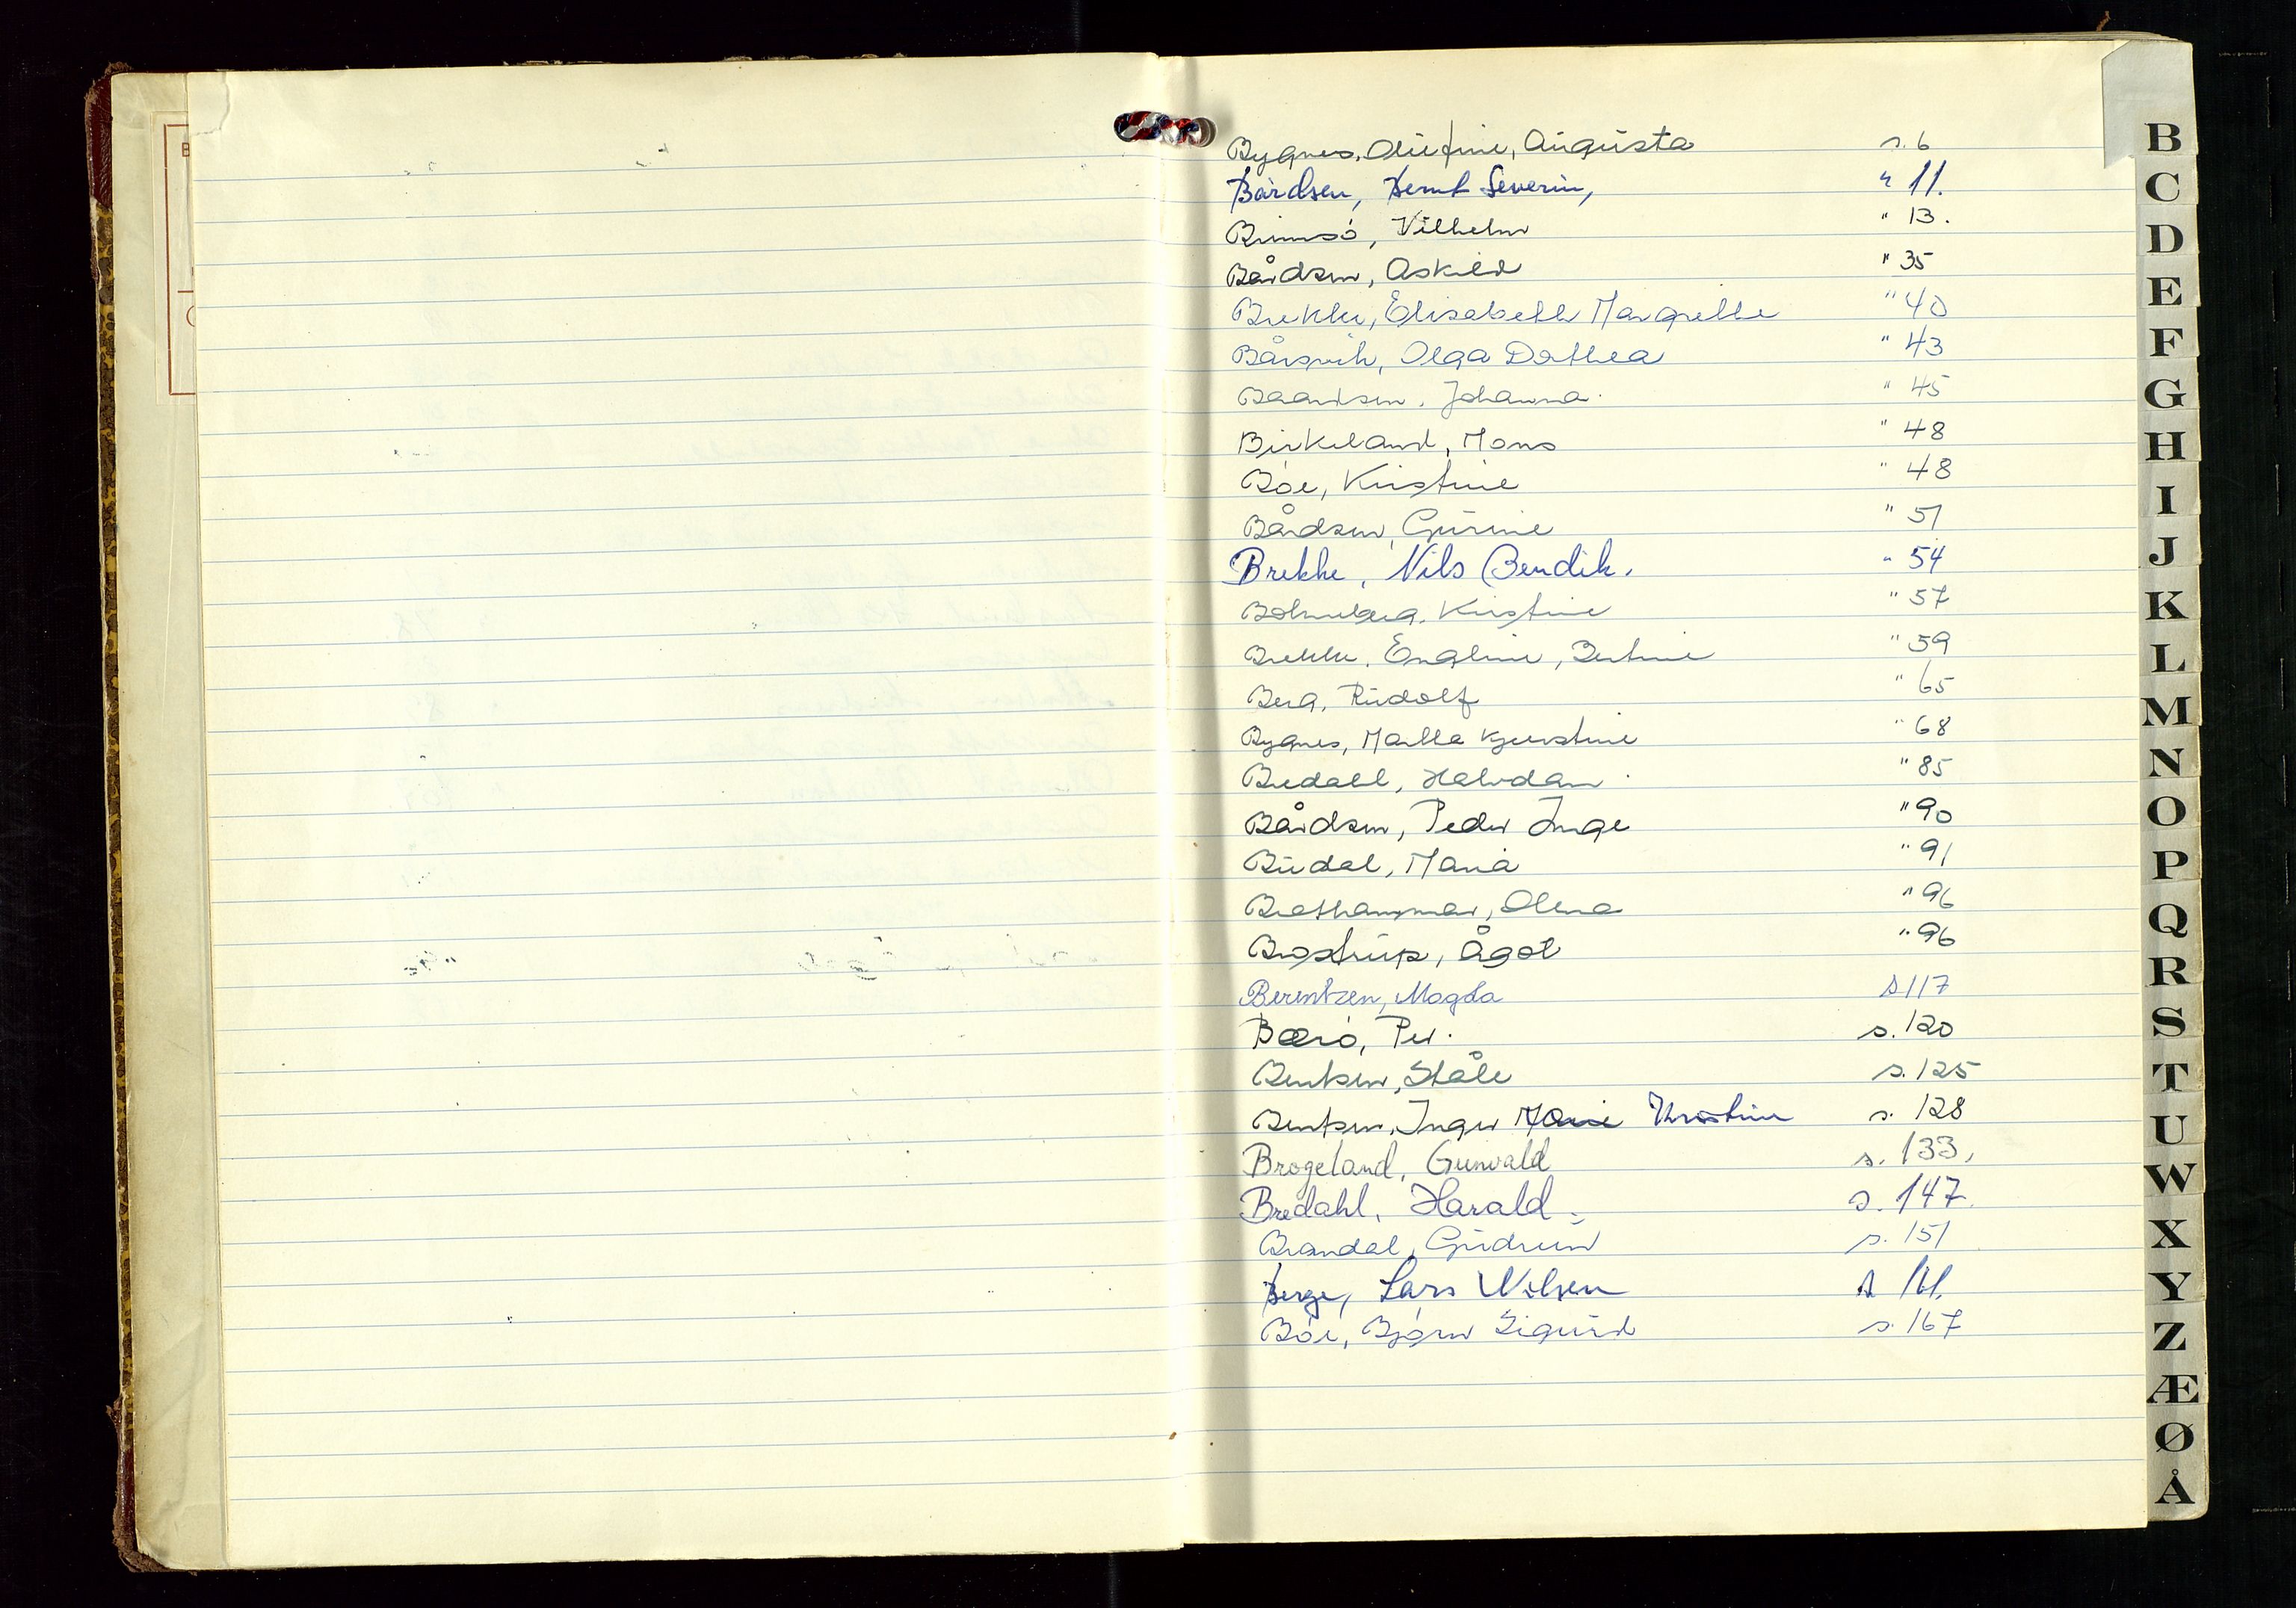 Bygnes, Olufine, Augusta s. 6
Bårdsen, Bernt Severin, " 11.
Rimsö, Vilhelm " 13.
Bårdsen, Askild " 35
Brekke, Elisabeth Margrethe " 40
Bårsvik, Olga Dorthea " 43
Baardsen, Johanna. " 45
Birkeland, Mons " 48
Böe, Kristine " 48
Bårdsen, Gurine " 51
Brekke, Nils Bendik. " 54
Kristine " 57
Brekke, Engline, Bertine " 59
Berg, Rudolf " 65
Bygnes, Martha Kjerstine " 68
Bredahl, Halvdan " 85
Bårdsen, Peder Inge " 90
Budal, Maria " 91
Brathammer, Olena " 96
Brostrup, Ågot " 96
Berentzen, Magda s 117
Bærö, Per. s. 120
Bentsen, Ståle s. 125
Bentsen, Inger Marie Kristine s. 128
Brogeland, Gunvald s. 133,
Bredahl, Harald. s. 147.
Brandal, Gudrun s. 151
Berge, Lars Nilsen s 161.
Böe, Bjørn Sigurd s. 167
B
C
D
E
F
G
H
I
J
K
L
M
N
O
P
Q
R
S
T
U
W
X
Y
Z
Æ
Ø
Å